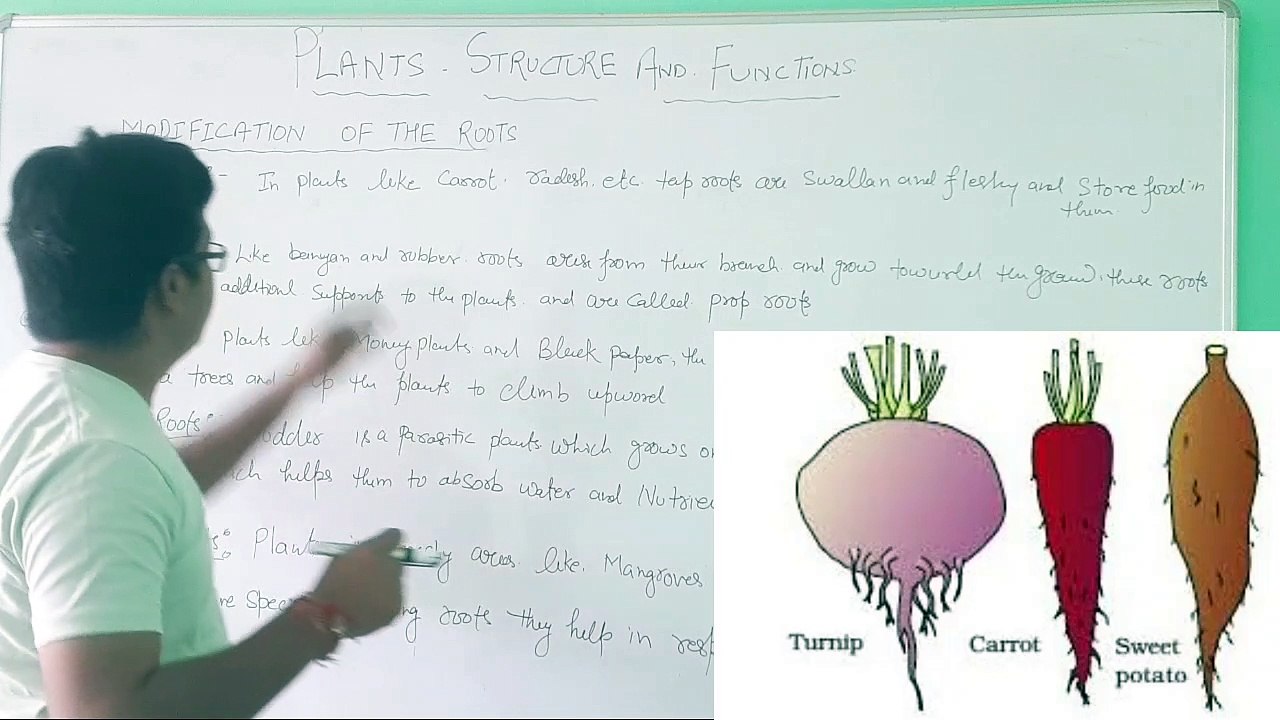 PLANTS. STRUCTURE AND. FUNCTIONS.
MODIFICATION OF THE ROOTS
In plants like Carrot. radesh. etc. tap roots are Swallan and fleshy and Store food in
them.
Like banyan and rubber. roots arise from their branch and grow towards the these roots
additional Supports to the plants. and are called prop roots
Plants like Money plants and Bleck paper, the
a trees and help the plants to climb upword
Roots: dodder is a Parasitic plants which grows
helps them to absorb water and
Plants areas. like. Mangroves
roots they help in
Turnip
Carrot
Sweet
potato